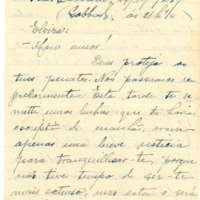 Elvira:
- Meu amor!
Deus proteja os
teus penates. Nós passamos re-
gularmente. Esta tarde te re-
metti umas linhas que te havia
escripto de manhã, eram
apenas uma breve noticia
para tranquilisar-te, porque
não tive tempo de ser-te
mais extenso, mas estou